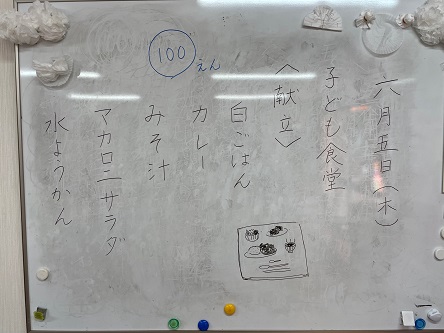 六月五日(木)
子ども食堂
〈献立〉
白ごはん
カレー
みそ汁
マカロニサラダ
水ようかん
100えん